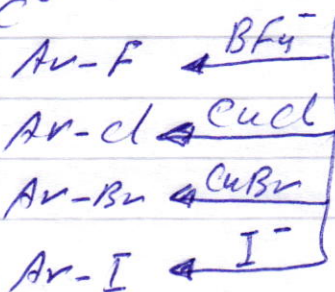 Ar-F BF4-
Ar-Cl CuCl
Ar-Br CuBr
Ar-I I-